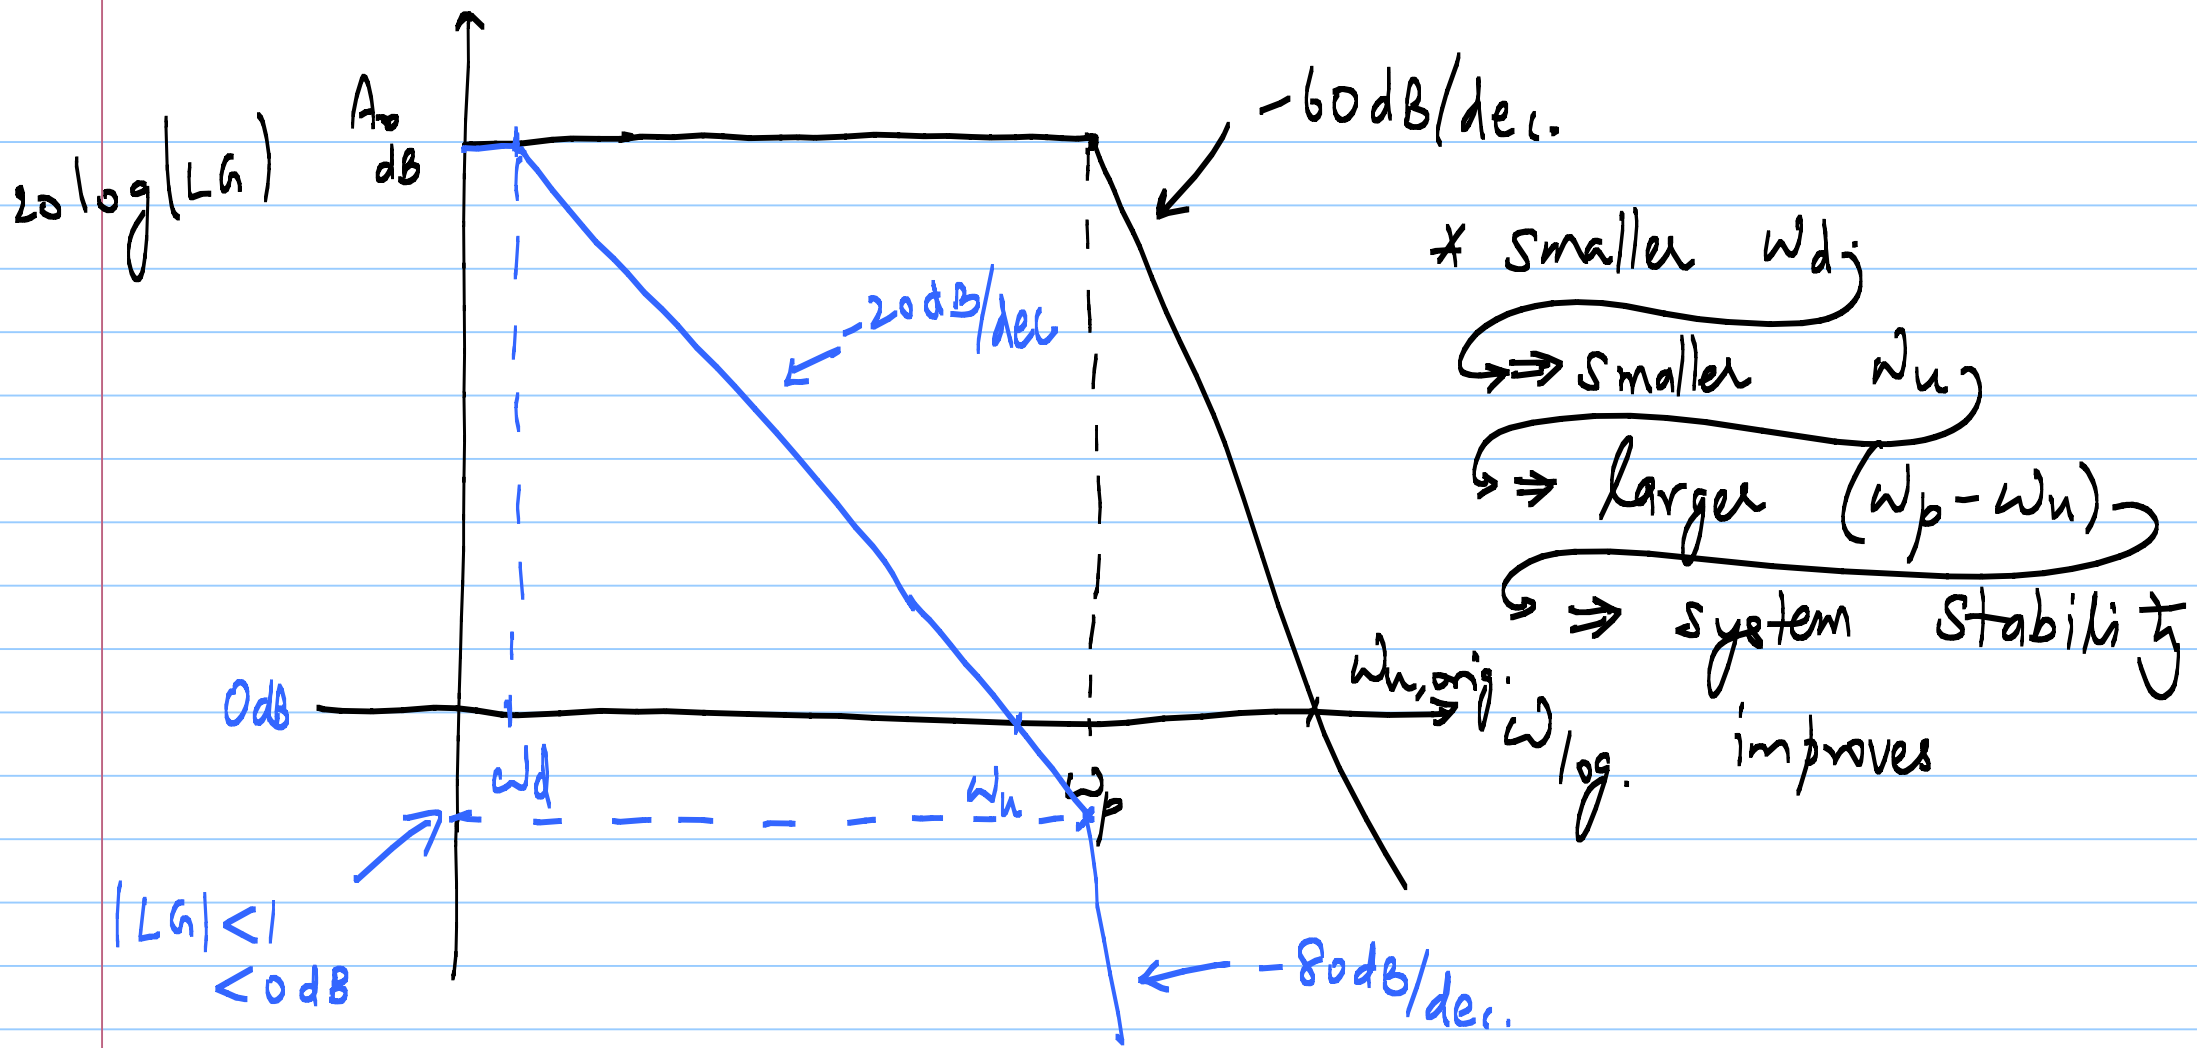 20log|LG|
A₀
dB
-60dB/dec.
-20dB/dec
* smaller ωd
⇒ smaller ωu
⇒ larger (ωp-ωu)
⇒ system stability
improves
0dB
ωu,orig.
ωlog.
ωd
ωu
ωp
|LG|<1
<0dB
-80dB/dec.